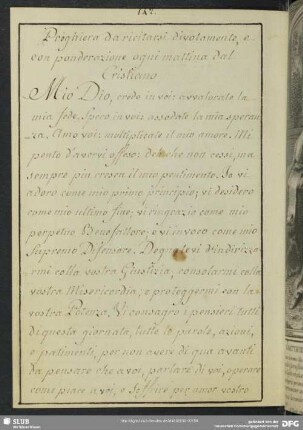 147.
Preghiera da recitarsi divotamente, e
con ponderazione ogni mattina dal
Cristiano
Mio Dio, credo in voi: avvalorate la
mia fede. Spero in voi: assodate la mia speran
za. Amo voi: moltiplicate il mio amore. Mi
pento d'avervi offeso: deh che non cessi, ma
sempre più cresca il mio pentimento. Io vi
adoro come mio primo principio; vi desidero
come mio ultimo fine; vi ringrazio come mio
perpetuo Benefattore; e vi invoco come mio
Supremo Difensore. Degnatevi d'indirizza
rmi colla vostra Giustizia; consolarmi colla
vostra Misericordia; e proteggermi con la
vostra Potenza. Vi consagro i pensieri tutti
di questa giornata, tutte le parole, azioni,
e patimenti, per non aver di qua avanti
da pensare che a voi, parlare di voi, operare
come piace a voi, e soffrire per amor vostro
SLUB
DFG